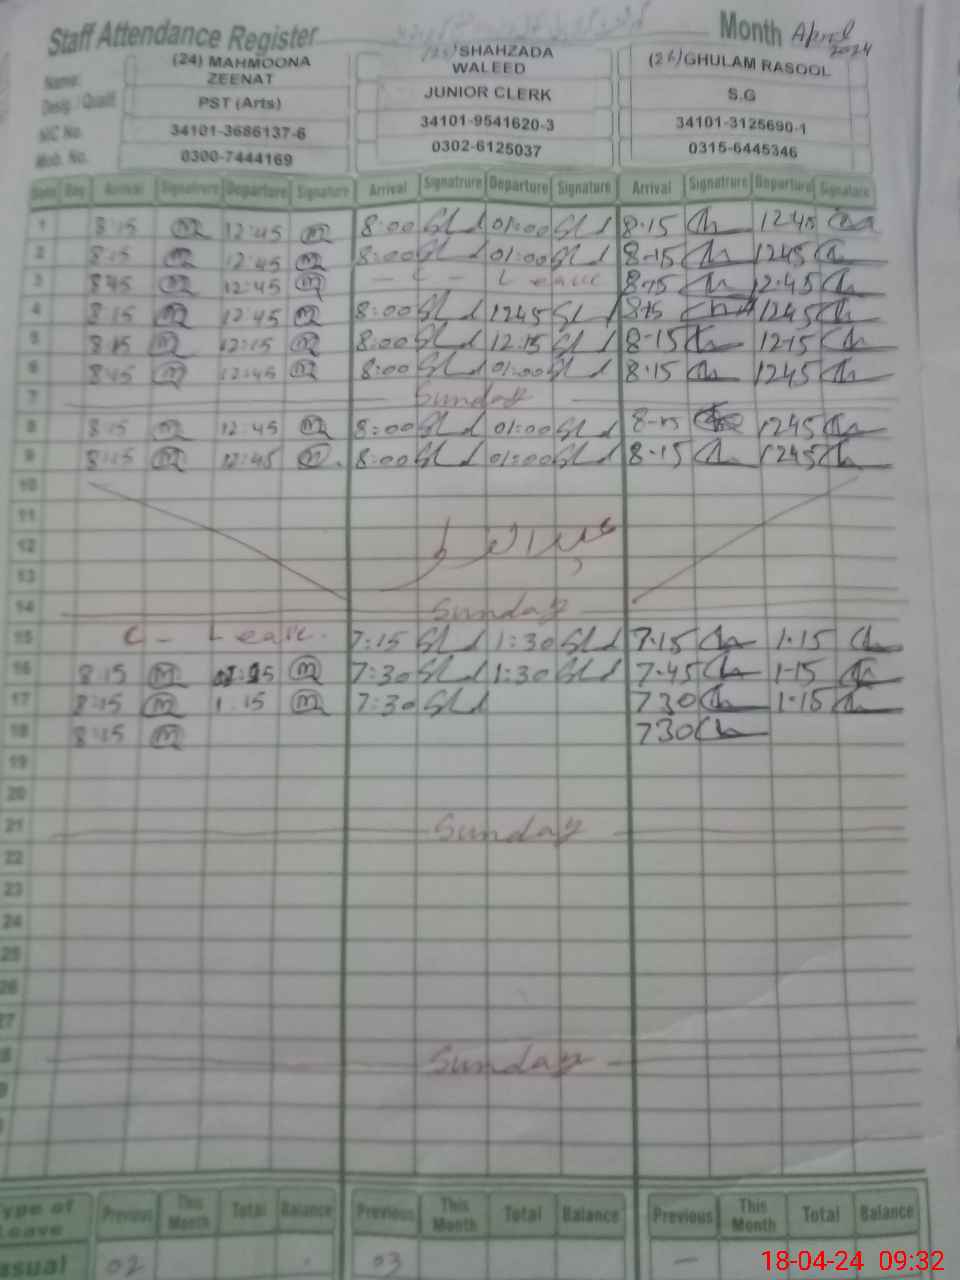 Staff Attendance Register
Month April 2024
Name: (24) MAHMOONA ZEENAT SHAHZADA WALEED (26) GHULAM RASOOL
Desig. / Qualif. PST (Arts) JUNIOR CLERK S.G
NIC No. 34101-3686137-6 34101-9541620-3 34101-3125690-1
Mob. No. 0300-7444169 0302-6125037 0315-6445346
Date Arrival Signatrure Departure Signature Arrival Signatrure Departure Signature Arrival Signatrure Departure Signature
1 8:15 12:45 8:00 01:00 8-15 1245
2 8:15 12:45 8:00 01:00 8-15 1245
3 8:15 12:45 C - Leave 8-15 12-45
4 8:15 12:45 8:00 1245 8-15 1245
5 8:15 12:15 8:00 12.15 8-15 12-15
6 8:15 12:45 8:00 01:00 8-15 1245
7 Sunday
8 8:15 12:45 8:00 01:00 8-15 1245
9 8:15 12:45 8:00 01:00 8-15 1245
10
11
12 عیدالفطر
13
14 Sunday
15 C - Leave. 7:15 1:30 7-15 1-15
16 8:15 7:30 1:30 7-45 1-15
17 8:15 1:15 7:30 730 1-15
18 8:15 730
19
20
21 Sunday
22
23
24
25
26
27
Sunday
Type of Leave Previous This Month Total Balance Previous This Month Total Balance Previous This Month Total Balance
02 03 —
18-04-24 09:32